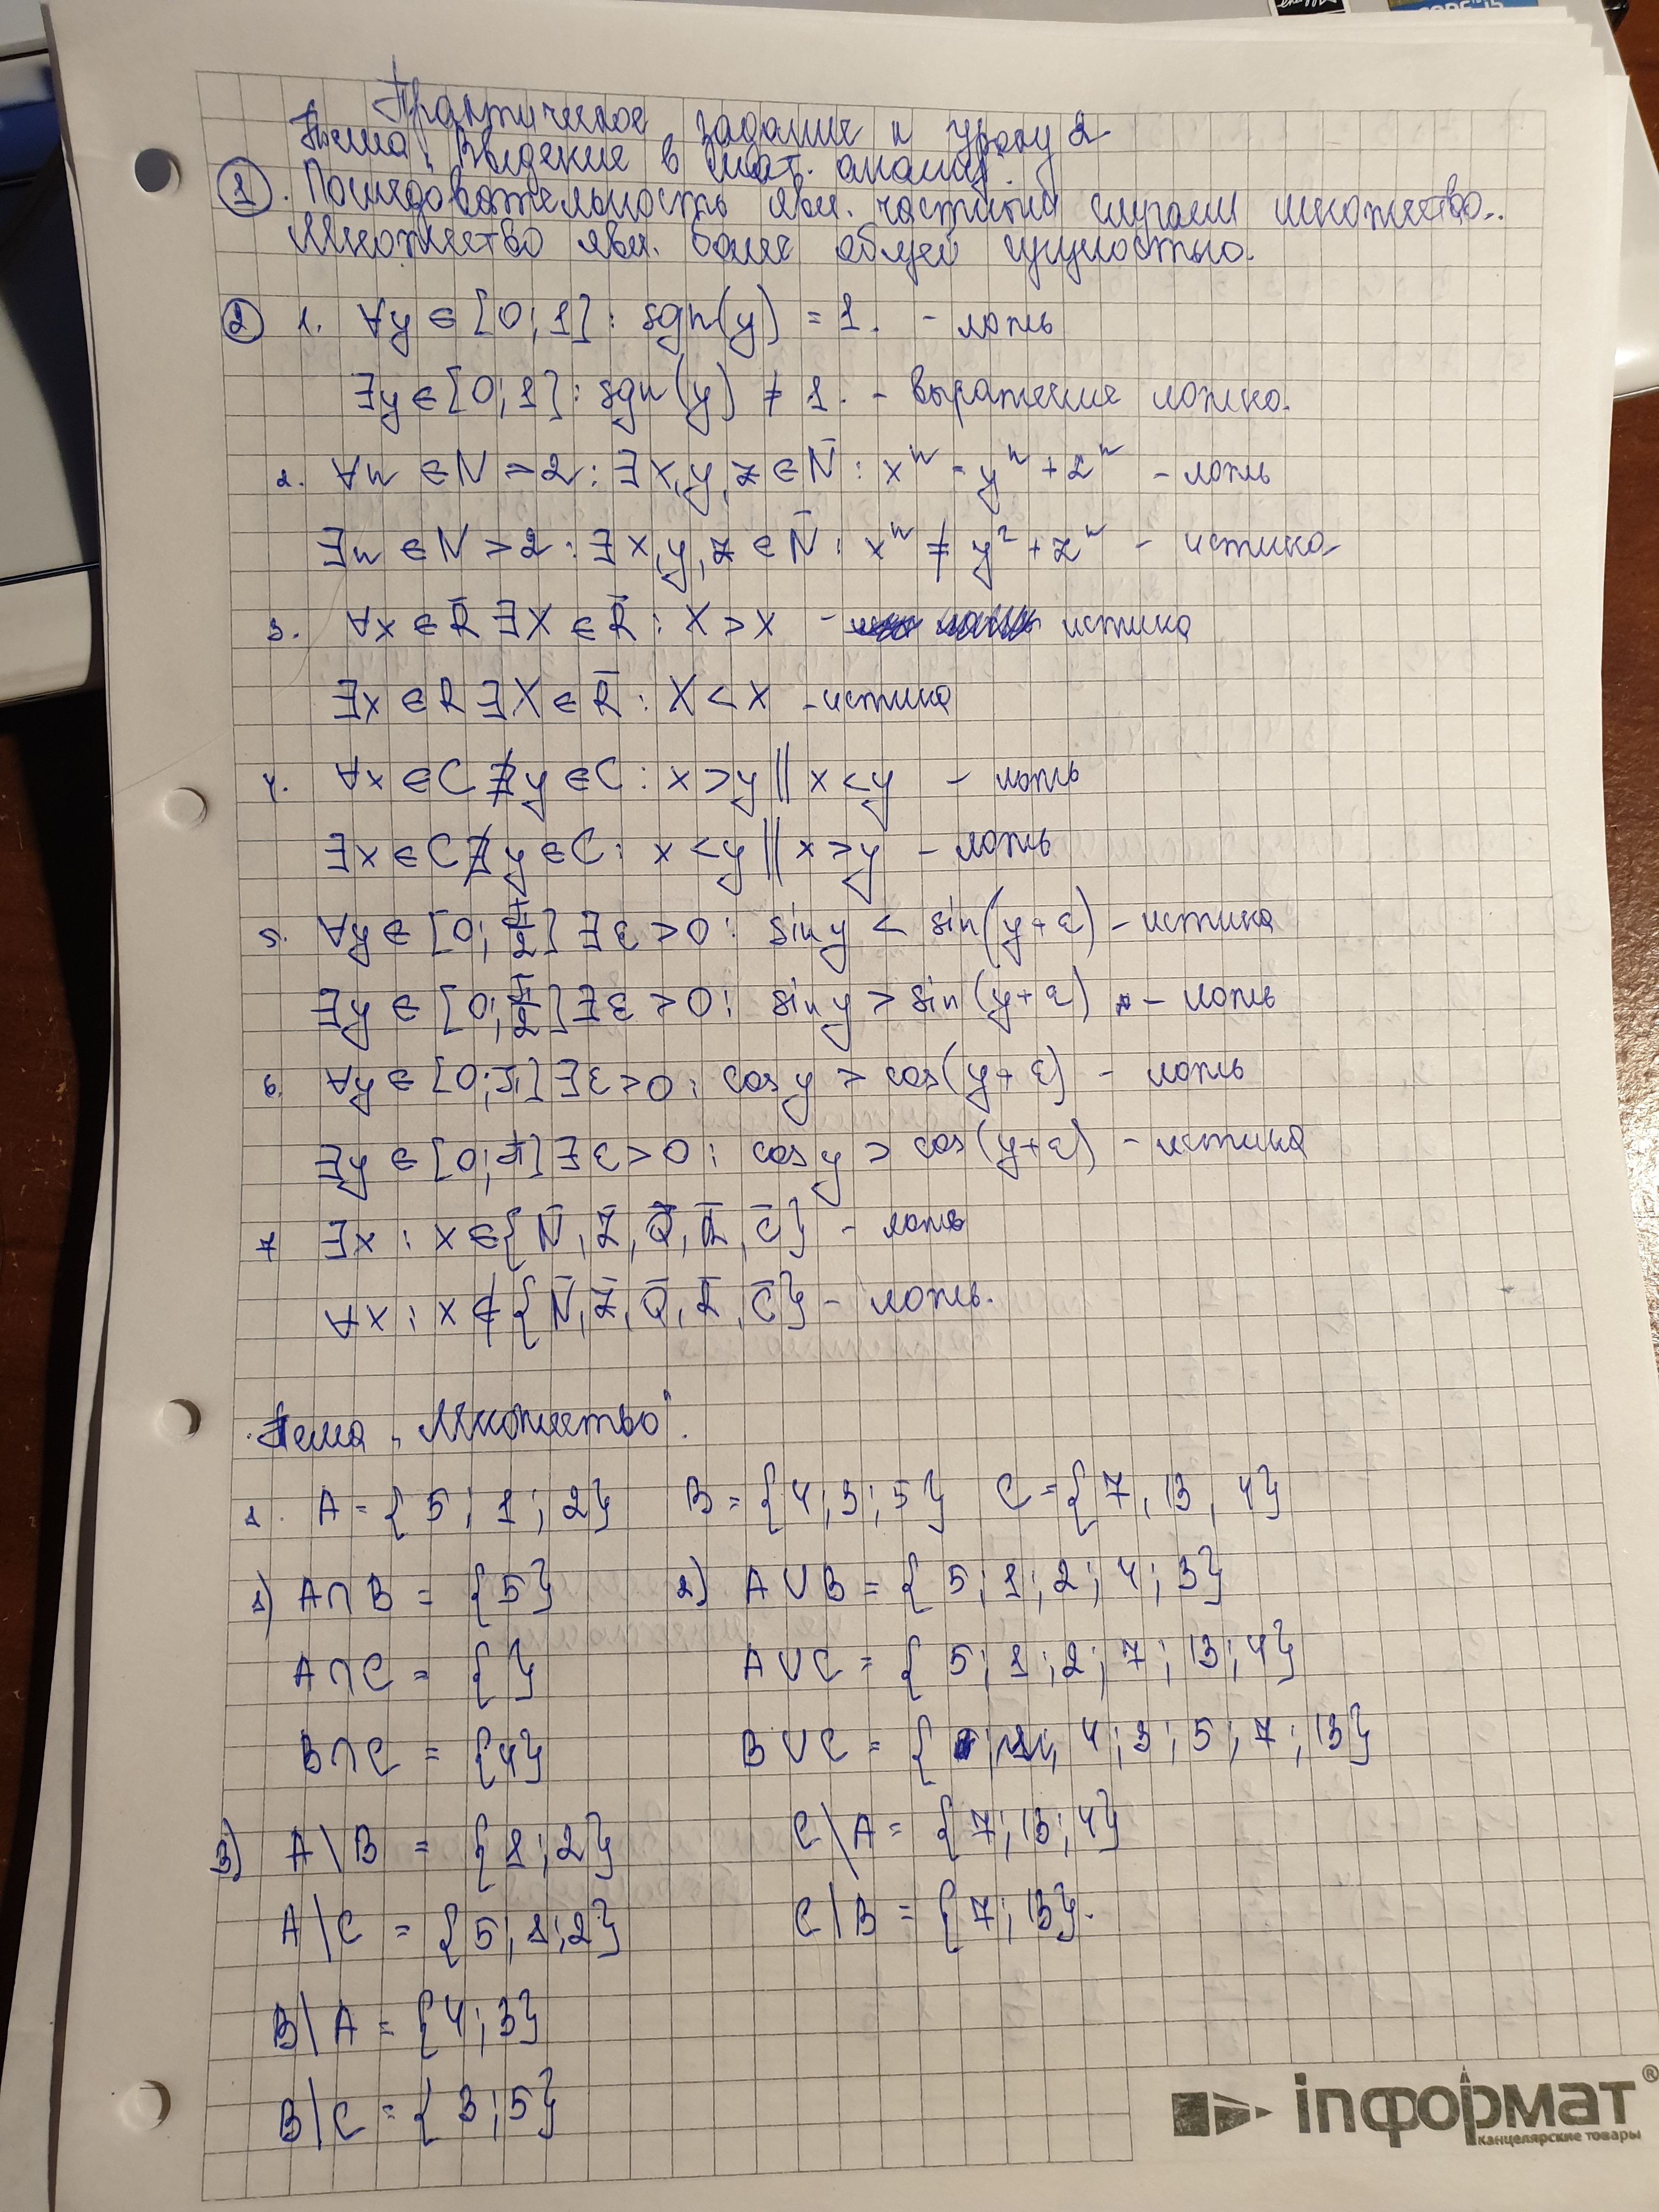 Практическое задание к уроку 2
Тема: Введение в мат. анализ.
① . Последовательность явл. частным случаем множества..
Множество явл. более общей сущностью.
② 1. ∀y ∈ [0; 1] : sgn(y) = 1. - ложь
∃y ∈ [0; 1] : sgn(y) ≠ 1. - выражение ложно.
2. ∀n ∈ N > 2 : ∃x,y,z ∈ N̄ : xⁿ = yⁿ + zⁿ - ложь
∃n ∈ N > 2 : ∃x,y,z ∈ N̄ : xⁿ ≠ y² + zⁿ - истина
3. ∀x ∈ R̄ ∃X ∈ R̄ : X > x - истина
∃x ∈ R ∃X ∈ R̄ : X < x - истина
4. ∀x ∈ C ∄y ∈ C : x > y || x < y - ложь
∃x ∈ C ∄y ∈ C : x < y || x > y - ложь
5. ∀y ∈ [0; π/2] ∃ε > 0 : sin y < sin(y+ε) - истина
∃y ∈ [0; π/2] ∃ε > 0 : sin y > sin(y+ε) - ложь
6. ∀y ∈ [0; π] ∃ε > 0 : cos y > cos(y+ε) - ложь
∃y ∈ [0; π] ∃ε > 0 : cos y > cos(y+ε) - истина
7 ∃x : x ∈ {N̄, Z̄, Q̄, R̄, C̄} - ложь
∀x : x ∉ {N̄, Z̄, Q̄, R̄, C̄} - ложь.
Тема „Множество".
1. A = {5; 1; 2} B = {4; 3; 5} C = {7, 13, 4}
1) A∩B = {5} 2) A∪B = {5; 1; 2; 4; 3}
A∩C = {} A∪C = {5; 1; 2; 7; 13; 4}
B∩C = {4} B∪C = {4; 3; 5; 7; 13}
3) A\B = {1; 2} C\A = {7; 13; 4}
A|C = {5; 1; 2} C|B = {7; 13}.
B|A = {4; 3}
B|C = {3; 5}
inформат®
канцелярские товары